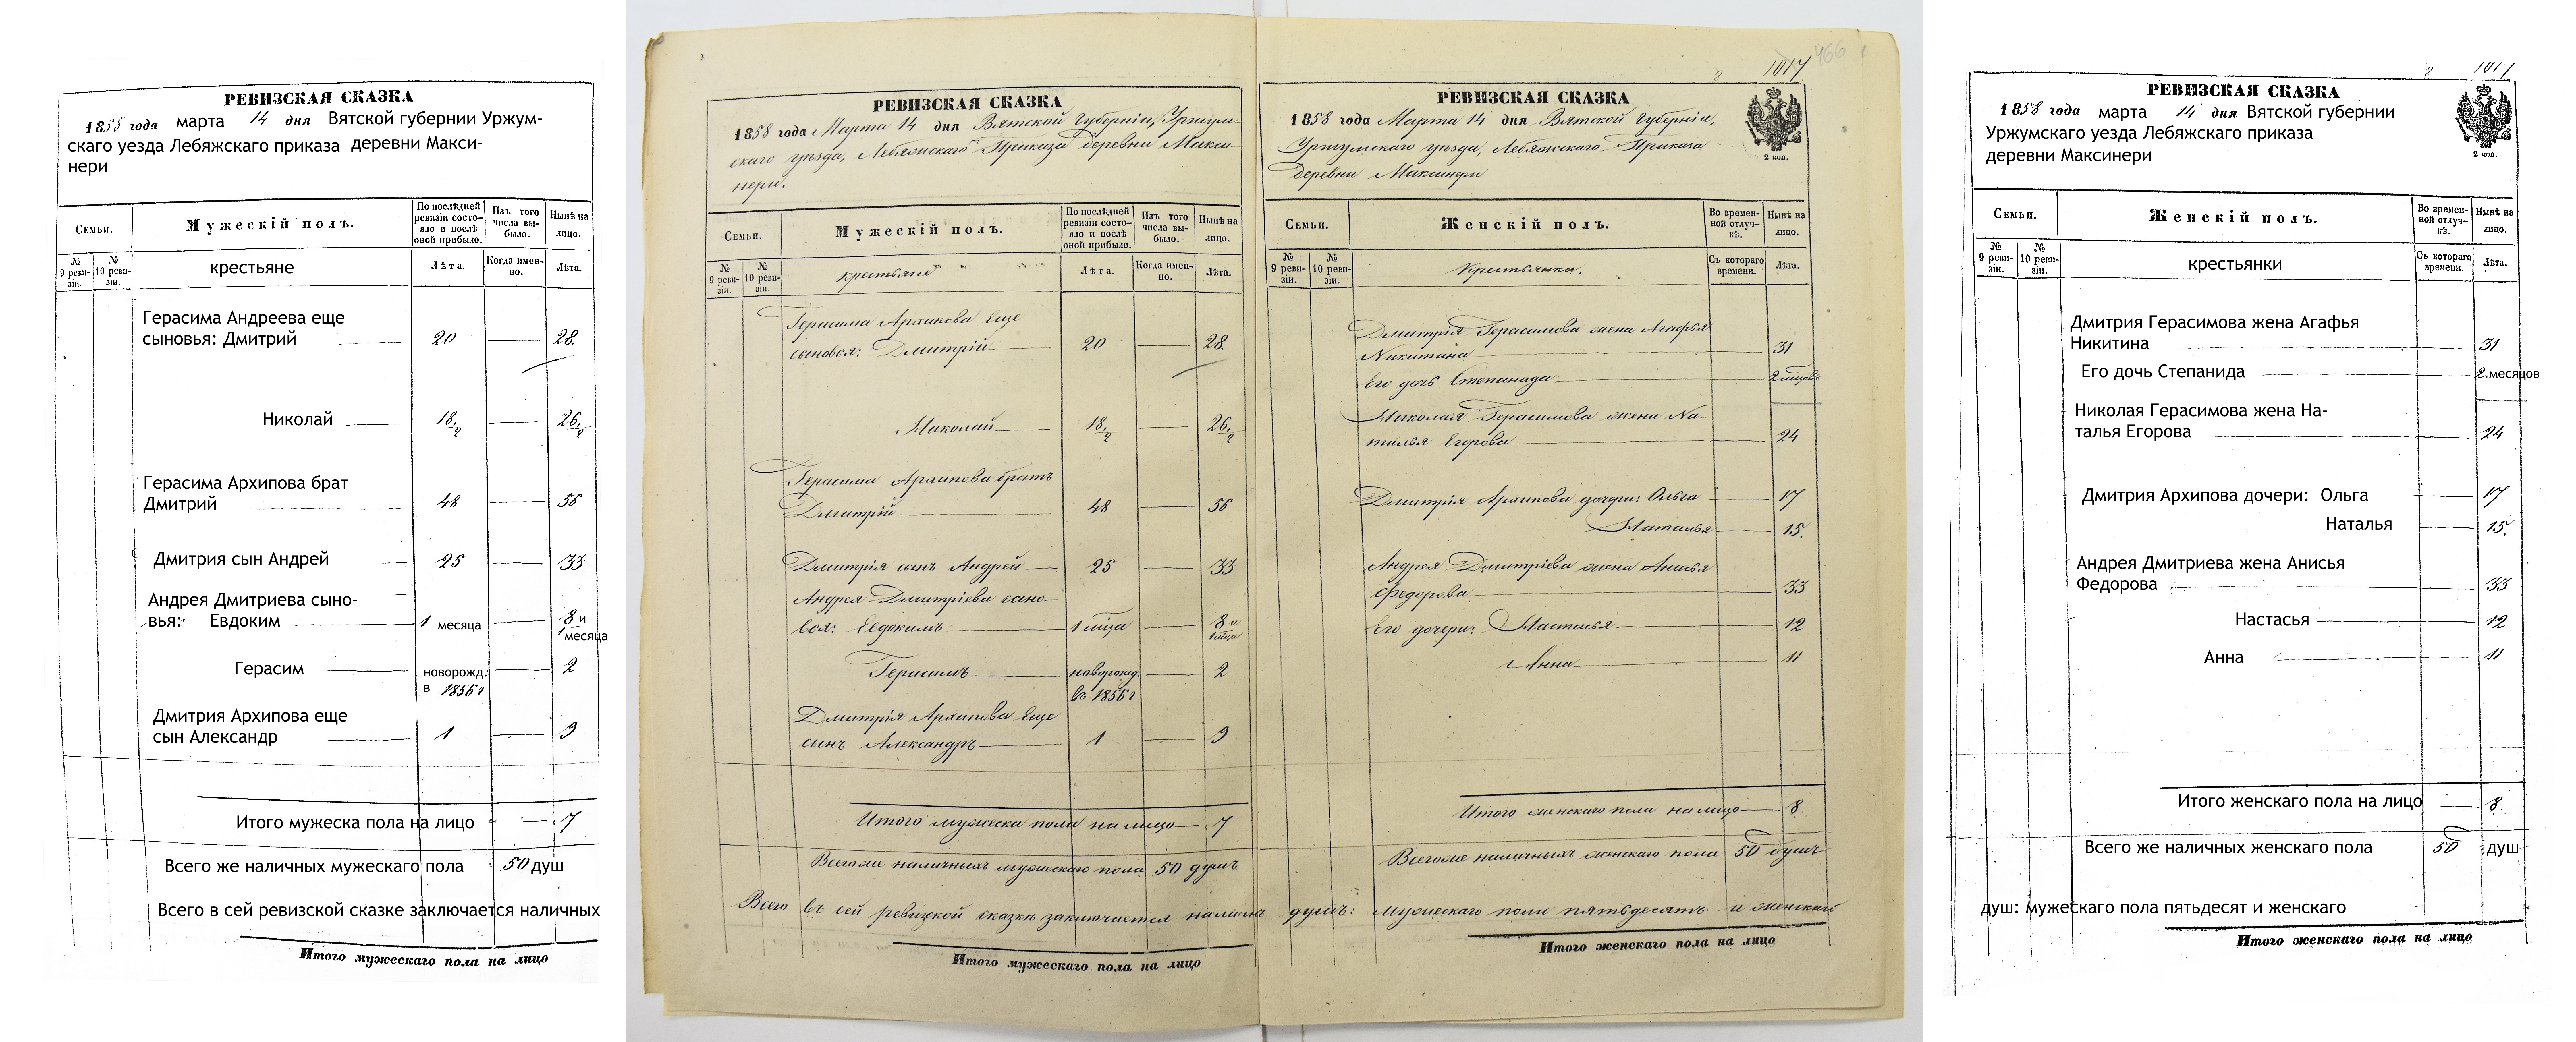 РЕВИЗСКАЯ СКАЗКА
1858 года марта 14 дня Вятской губернии Уржум-
скаго уезда Лебяжского приказа деревни Макси-
нери
Семьи.
Мужескій полъ.
По послѣдней ревизіи состо-яло и послѣ оной прибыло.
Изъ того числа вы-было.
Нынѣ на лицо.
№ 9 реви-зіи.
№ 10 реви-зіи.
крестьяне
Лѣта.
Когда имен-но.
Лѣта.
Герасима Андреева еще
сыновья: Дмитрий 20 28
Николай 18 1/2 26 1/2
Герасима Архипова брат
Дмитрий 48 56
Дмитрия сын Андрей 25 33
Андрея Дмитриева сыно-
вья: Евдоким 1 месяца 8 и
1 месяца
Герасим новорожд. 2
в 1856 г
Дмитрия Архипова еще
сын Александр 1 9
Итого мужеска пола на лицо 7
Всего же наличных мужескаго пола 50 душ
Всего в сей ревизской сказке заключается наличных
Итого мужескаго пола на лицо
466
1017
РЕВИЗСКАЯ СКАЗКА
1858 года Марта 14 дня Вятской Губерніи, Уржум-
скаго уѣзда, Лебяжскаго Приказа деревни Макси-
нери.
Семьи.
Мужескій полъ.
По послѣдней ревизіи состо-яло и послѣ оной прибыло.
Изъ того числа вы-было.
Нынѣ на лицо.
№ 9 реви-зіи.
№ 10 реви-зіи.
крестьяне
Лѣта.
Когда имен-но.
Лѣта.
Герасима Архипова еще
сыновья: Дмитрій 20 28.
Николай 18 1/2 26 1/2
Герасима Архипова братъ
Дмитрій 48 56
Дмитрія сынъ Андрей 25 33
Андрея Дмитріева сыно-
вья: Евдокимъ 1 мѣсяца 8 и
1 мѣсяца
Герасимъ новорожд. 2
въ 1856 г
Дмитрія Архипова еще
сынъ Александръ 1 9
Итого мужеска пола на лицо 7
Всего же наличныхъ мужескаго пола 50 душъ
Всего въ сей ревизской сказкѣ заключается наличн
Итого мужескаго пола на лицо
РЕВИЗСКАЯ СКАЗКА
1858 года Марта 14 дня Вятской Губерніи,
Уржумскаго уѣзда, Лебяжскаго Приказа
деревни Максинери
2 коп.
Семьи.
Женскій полъ.
Во времен-ной отлуч-кѣ.
Нынѣ на лицо.
№ 9 реви-зіи.
№ 10 реви-зіи.
Крестьянки.
Съ котораго времени.
Лѣта.
Дмитрія Герасимова жена Агафья
Никитина 31
Его дочь Степанида 2 мѣсяцовъ
Николая Герасимова жена На-
талья Егорова 24
Дмитрія Архипова дочери: Ольга 17
Наталья 15.
Андрея Дмитріева жена Анисья
Федорова 33
Его дочери: Настасья 12
Анна 11
Итого женскаго пола на лицо 8.
Всего же наличныхъ женскаго пола 50 душъ
душъ: мужескаго пола пятьдесятъ и женскаго
Итого женскаго пола на лицо
2 1017
РЕВИЗСКАЯ СКАЗКА
1858 года марта 14 дня Вятской губернии
Уржумскаго уезда Лебяжского приказа
деревни Максинери
2 коп.
Семьи.
Женскій полъ.
Во времен-ной отлуч-кѣ.
Нынѣ на лицо.
№ 9 реви-зіи.
№ 10 реви-зіи.
крестьянки
Съ котораго времени.
Лѣта.
Дмитрия Герасимова жена Агафья
Никитина 31
Его дочь Степанида 2 месяцов
Николая Герасимова жена На-
талья Егорова 24
Дмитрия Архипова дочери: Ольга 17
Наталья 15.
Андрея Дмитриева жена Анисья
Федорова 33
Настасья 12
Анна 11
Итого женскаго пола на лицо 8.
Всего же наличных женскаго пола 50 душ
душ: мужескаго пола пятьдесят и женскаго
Итого женскаго пола на лицо